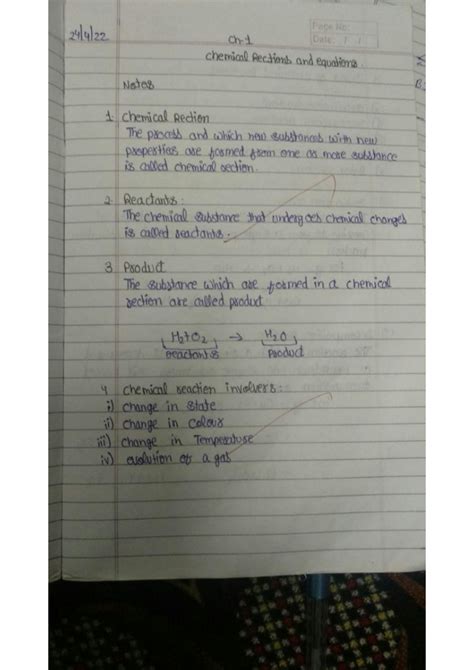 Page No:
Date: / /
24/4/22
Ch-1
Chemical Rections and equations
Notes
1. Chemical Rection
The process and which new substances with new
properties are formed from one or more substance
is called chemical rection.
2. Reactants:
The chemical substance that undergoes chemical changes
is called reactants.
3. Product
The substance which are formed in a chemical
rection are called product
H2+O2 → H2O
reactants product
4. Chemical reaction involvers:
i) change in state
ii) change in colour
iii) change in Temperature
iv) evolution of a gas